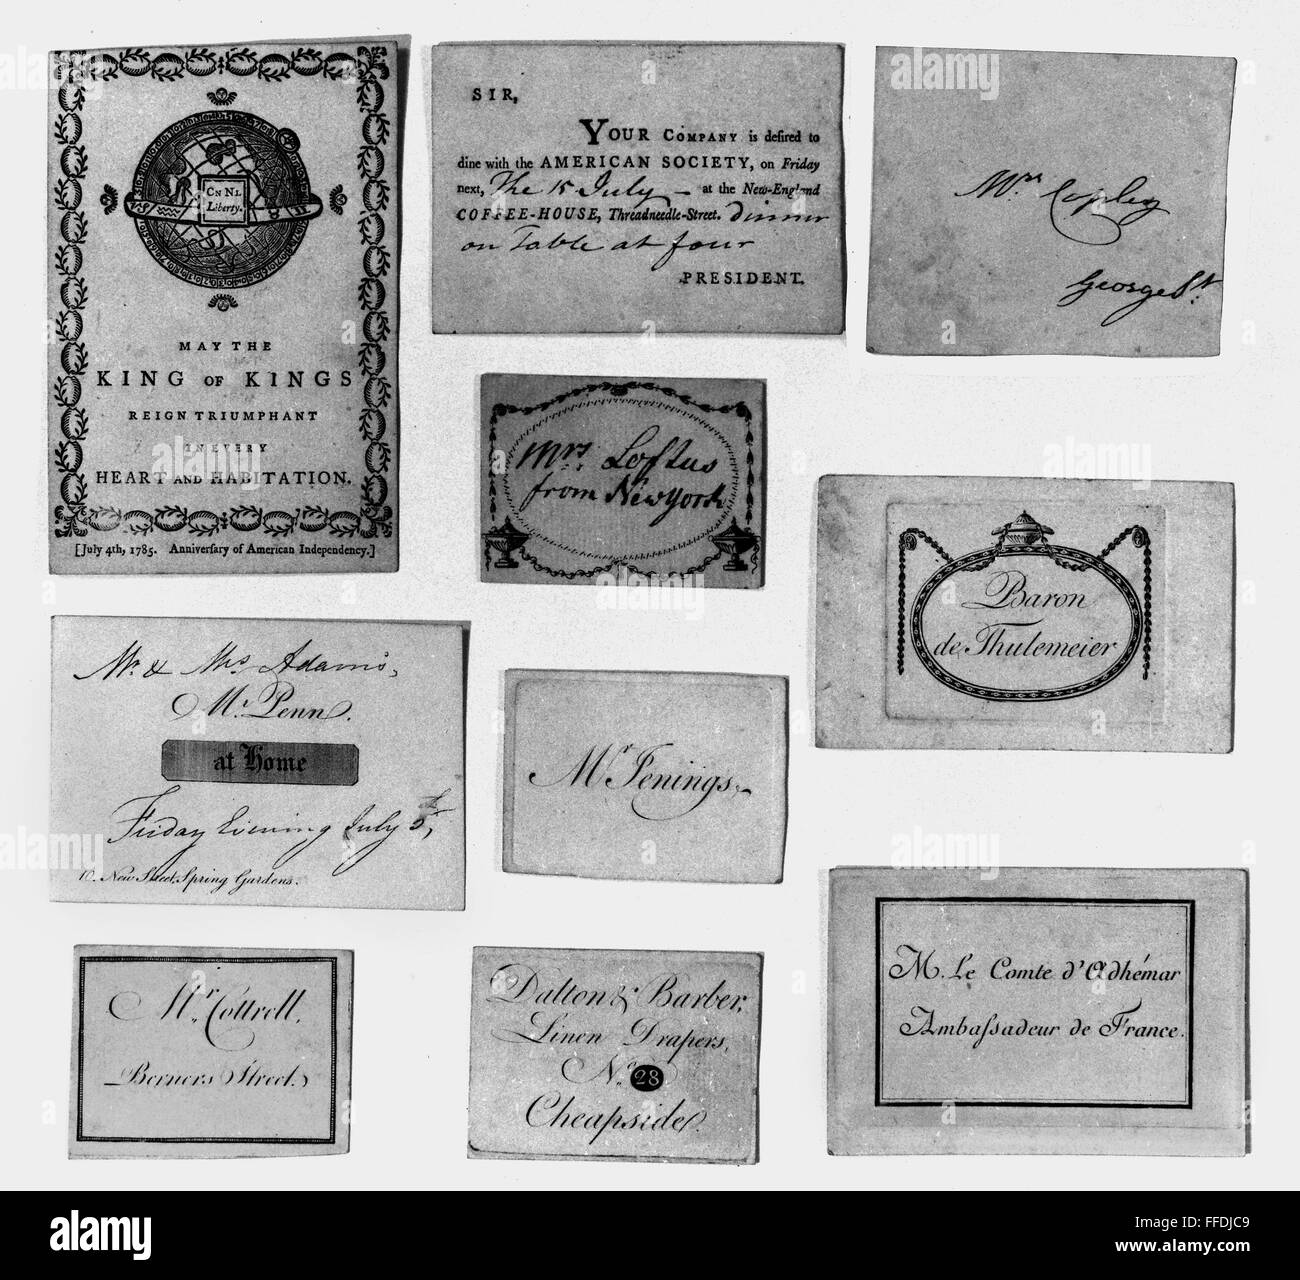 Cn Nl
Liberty.
MAY THE
KING OF KINGS
REIGN TRIUMPHANT
IN EVERY
HEART AND HABITATION.
[July 4th, 1785. Anniversary of American Independency.]
SIR,
YOUR COMPANY is desired to
dine with the AMERICAN SOCIETY, on Friday
next, The 15 July - at the New-England
COFFEE-HOUSE, Threadneedle-Street. dinner
on Table at four
PRESIDENT.
Mrs Copley
George St.
Mrs Loftus
from New York
Baron
de Thulemeier
Mr. & Mrs Adams,
Mr. Penn.
at Home
Friday Evening July 5th,
10. New Street, Spring Gardens.
Mr Jenings
Mr. Cottrell,
Berners Street.
Dalton & Barber,
Linen Drapers,
No. 28
Cheapside.
M. Le Comte d'Adhémar
Ambaſsadeur de France.
alamy
Image ID: FFDJC9
www.alamy.com